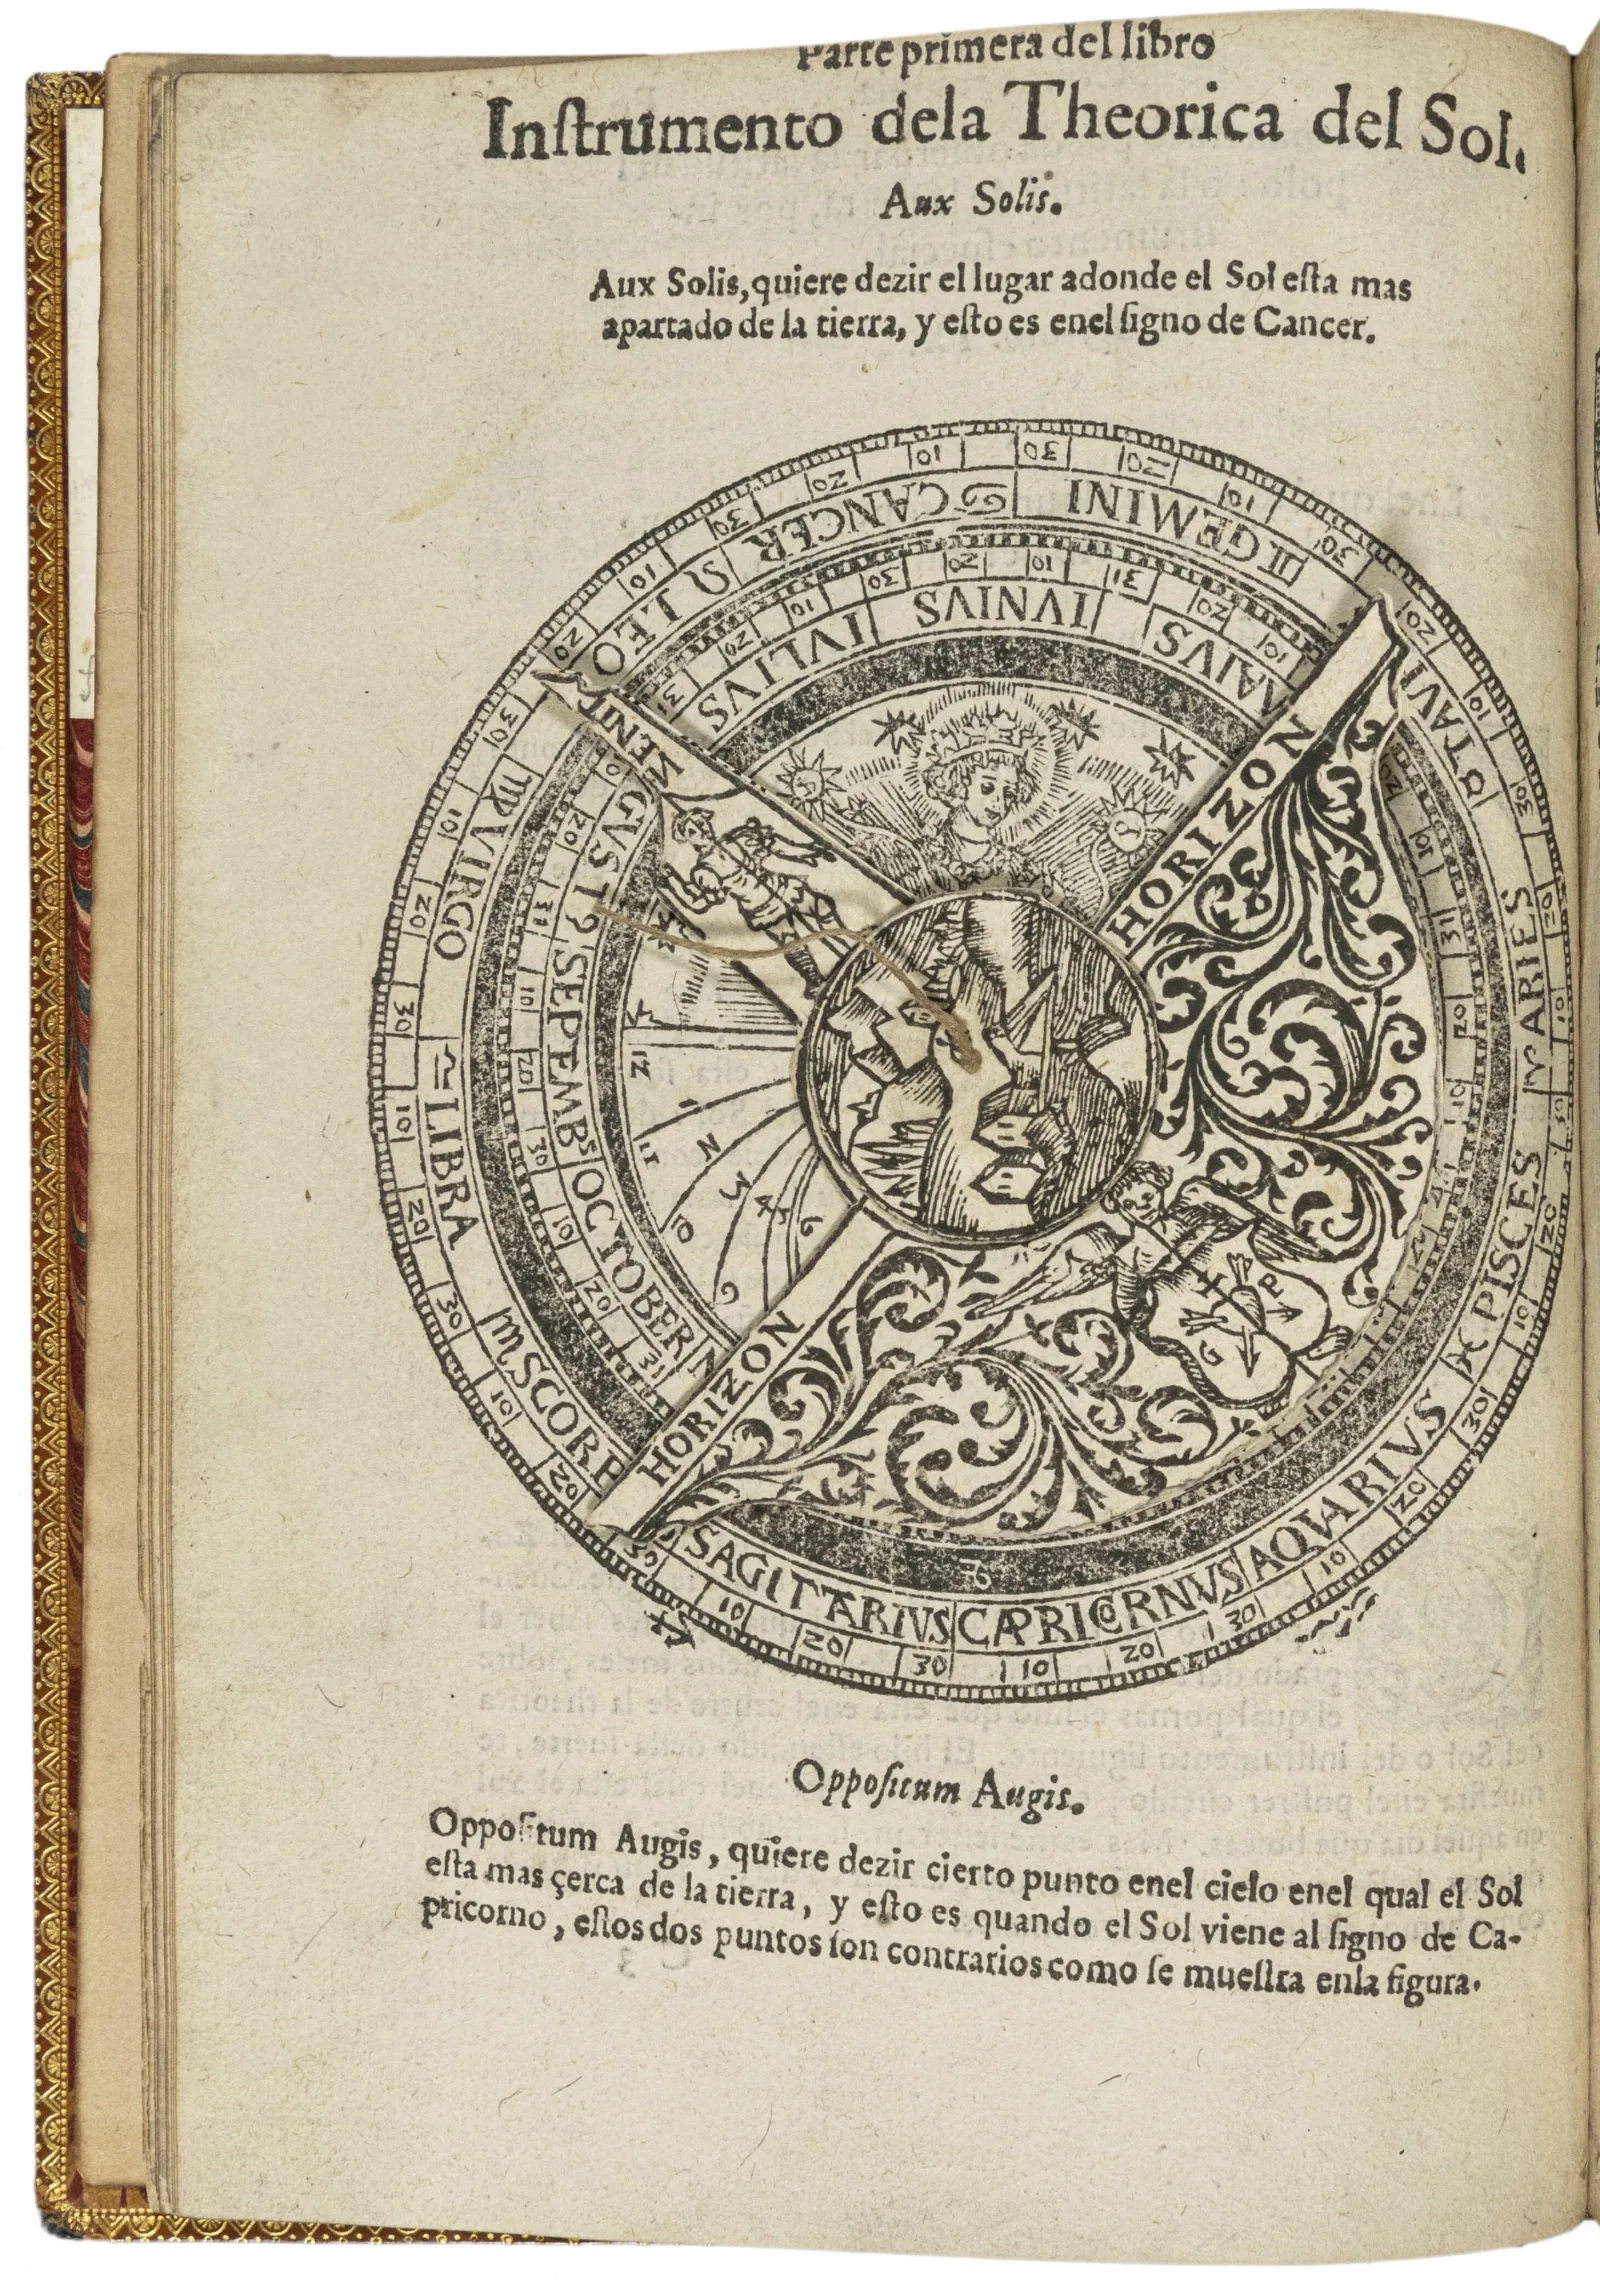 Parte primera del libro
Inſtrumento dela Theorica del Sol.
Aux Solis.
Aux Solis, quiere dezir el lugar adonde el Sol eſta mas
apartado de la tierra, y eſto es enel ſigno de Cancer.
30 10 20 30 10 20 30 10 20 30 10 20 30
♋ CANCER
♌ LEO
♍ VIRGO
♎ LIBRA
♏ SCORP
SAGITTARIVS
CAPRICORNVS
AQVARIVS
♓ PISCES
♈ ARIES
♉ TAVRI
♊ GEMINI
MAIVS
IVNIVS
IVLIVS
GVST
SEPEMBS
OCTOBER
N
HORIZON
HORIZON
12 11 10 9
1 2 3 4 5 6
H P G
Oppoſitum Augis.
Oppoſitum Augis, quiere dezir cierto punto enel cielo enel qual el Sol
eſta mas çerca de la tierra, y eſto es quando el Sol viene al ſigno de Ca-
pricorno, eſtos dos puntos ſon contrarios como ſe mueſtra enla figura.